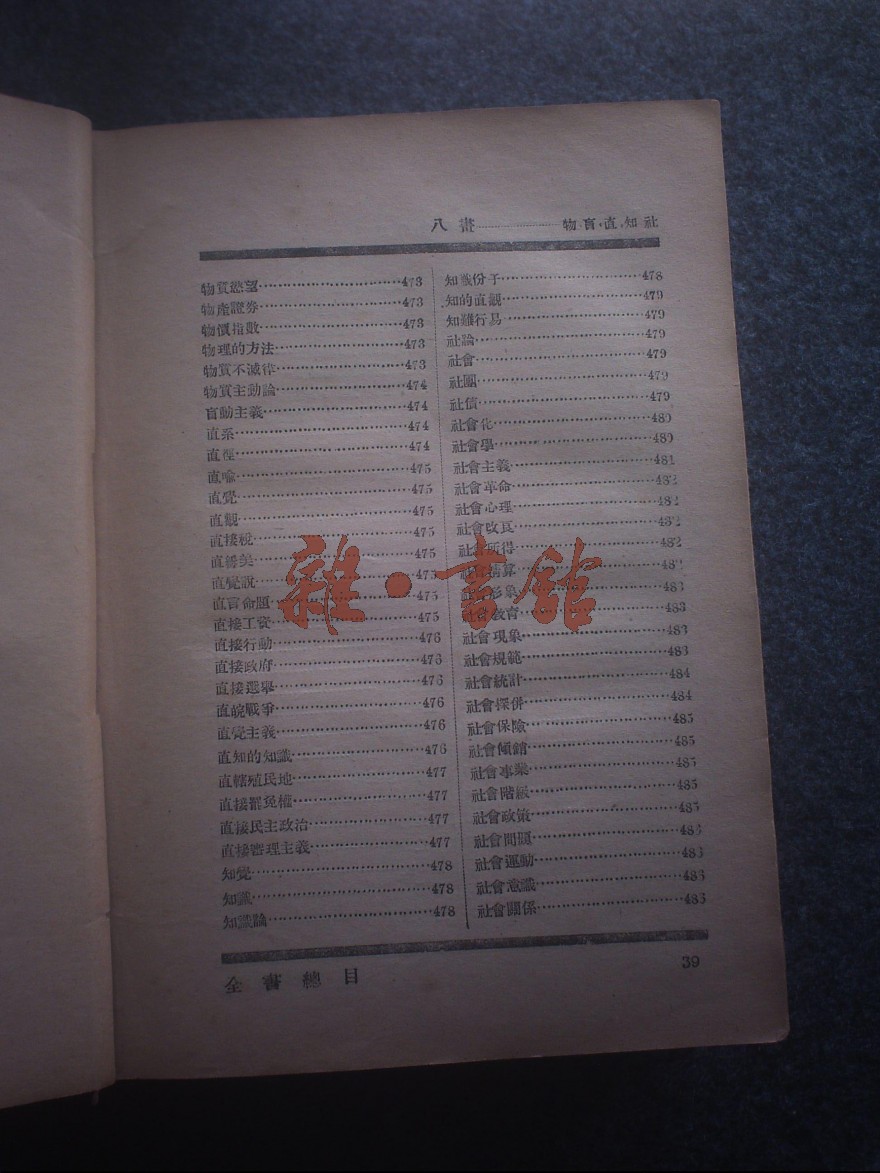 八畫……………物,盲,直,知,社
物質慾望……………473
物產證券……………473
物價指數……………473
物理的方法……………473
物質不滅律……………473
物質主動論……………474
盲動主義……………474
直系……………474
直徑……………474
直喻……………475
直覺……………475
直觀……………475
直接稅……………475
直善美……………475
直覺說……………475
直言命題……………475
直接工資……………475
直接行動……………476
直接政府……………476
直接選舉……………476
直皖戰爭……………476
直覺主義……………476
直知的知識……………476
直轄殖民地……………477
直接罷免權……………477
直接民主政治……………477
直接審理主義……………477
知覺……………478
知識……………478
知識論……………478
知識份子……………478
知的直觀……………479
知難行易……………479
社論……………479
社會……………479
社團……………479
社債……………479
社會化……………480
社會學……………480
社會主義……………481
社會革命……………482
社會心理……………482
社會改良……………482
社會所得……………482
社會精算……………482
社會形象……………483
社會教育……………483
社會現象……………483
社會規範……………483
社會統計……………484
社會探併……………484
社會保險……………485
社會傾銷……………485
社會事業……………485
社會階級……………485
社會政策……………485
社會問題……………486
社會運動……………486
社會意識……………486
社會關係……………486
雜·書館
全書總目
39